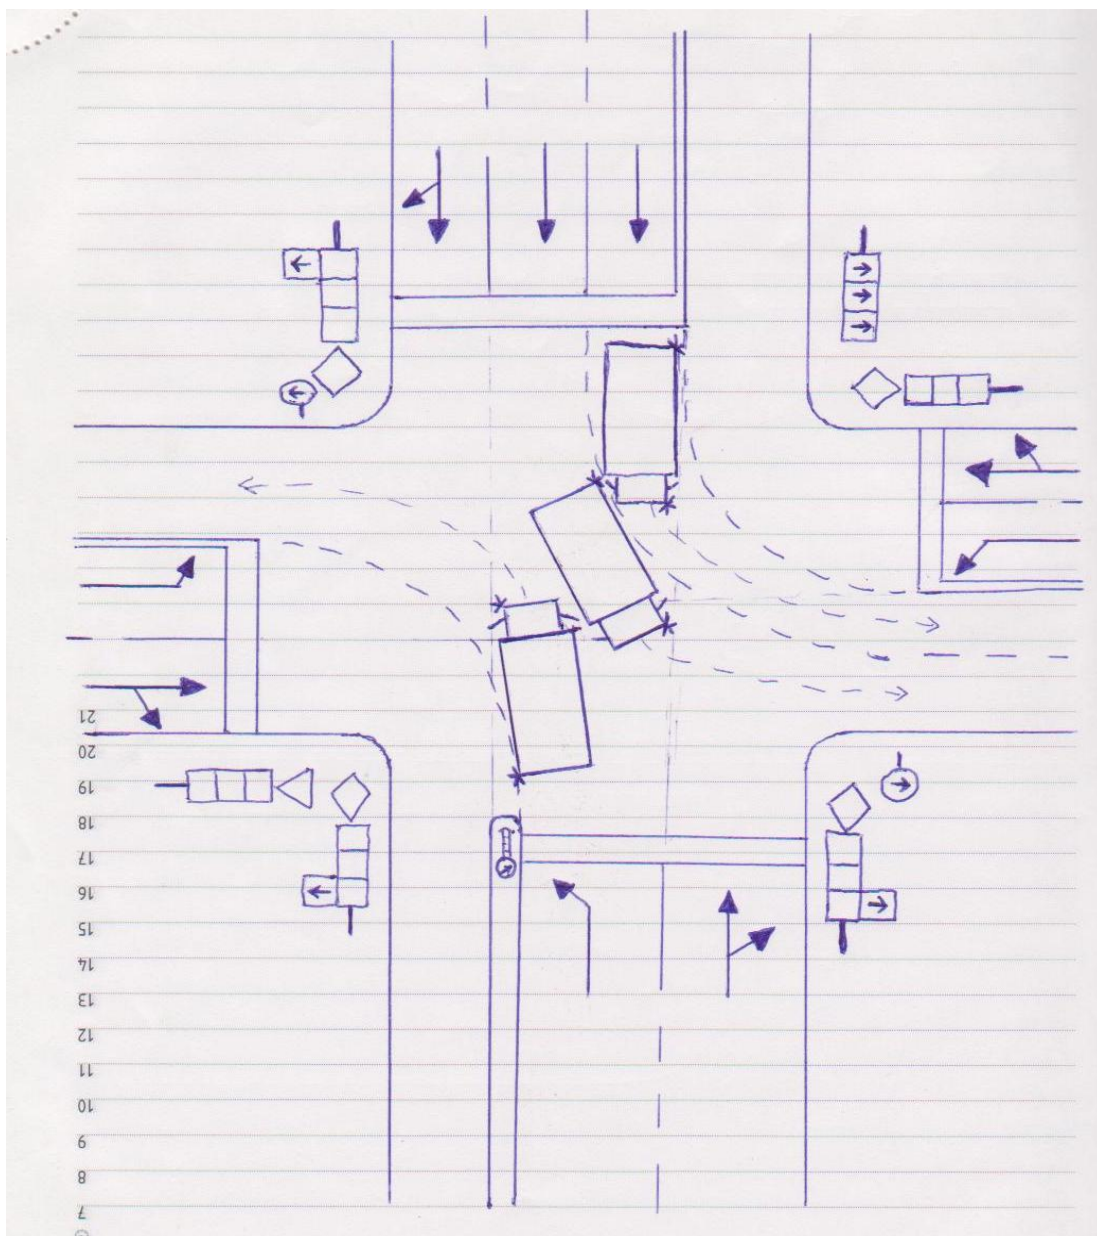 21
20
19
18
17
16
15
14
13
12
11
10
9
8
7